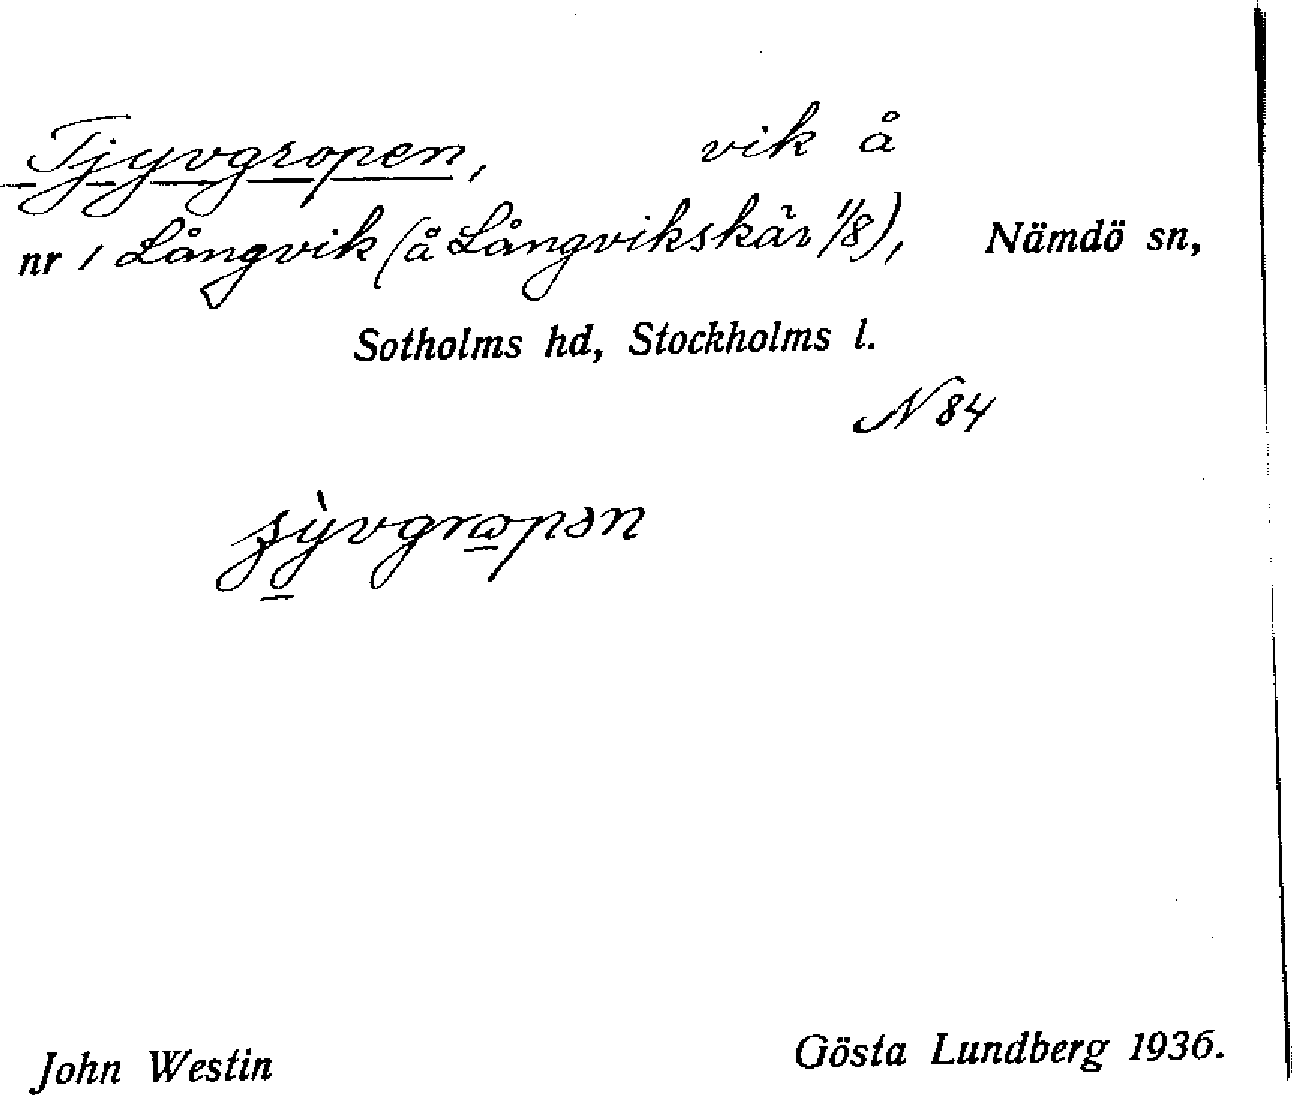 Tjyvgropen, vik å
nr 1 Långvik (å Långvikskär 1/8), Nämdö sn,
Sotholms hd, Stockholms l.
N 84
John Westin Gösta Lundberg 1936.